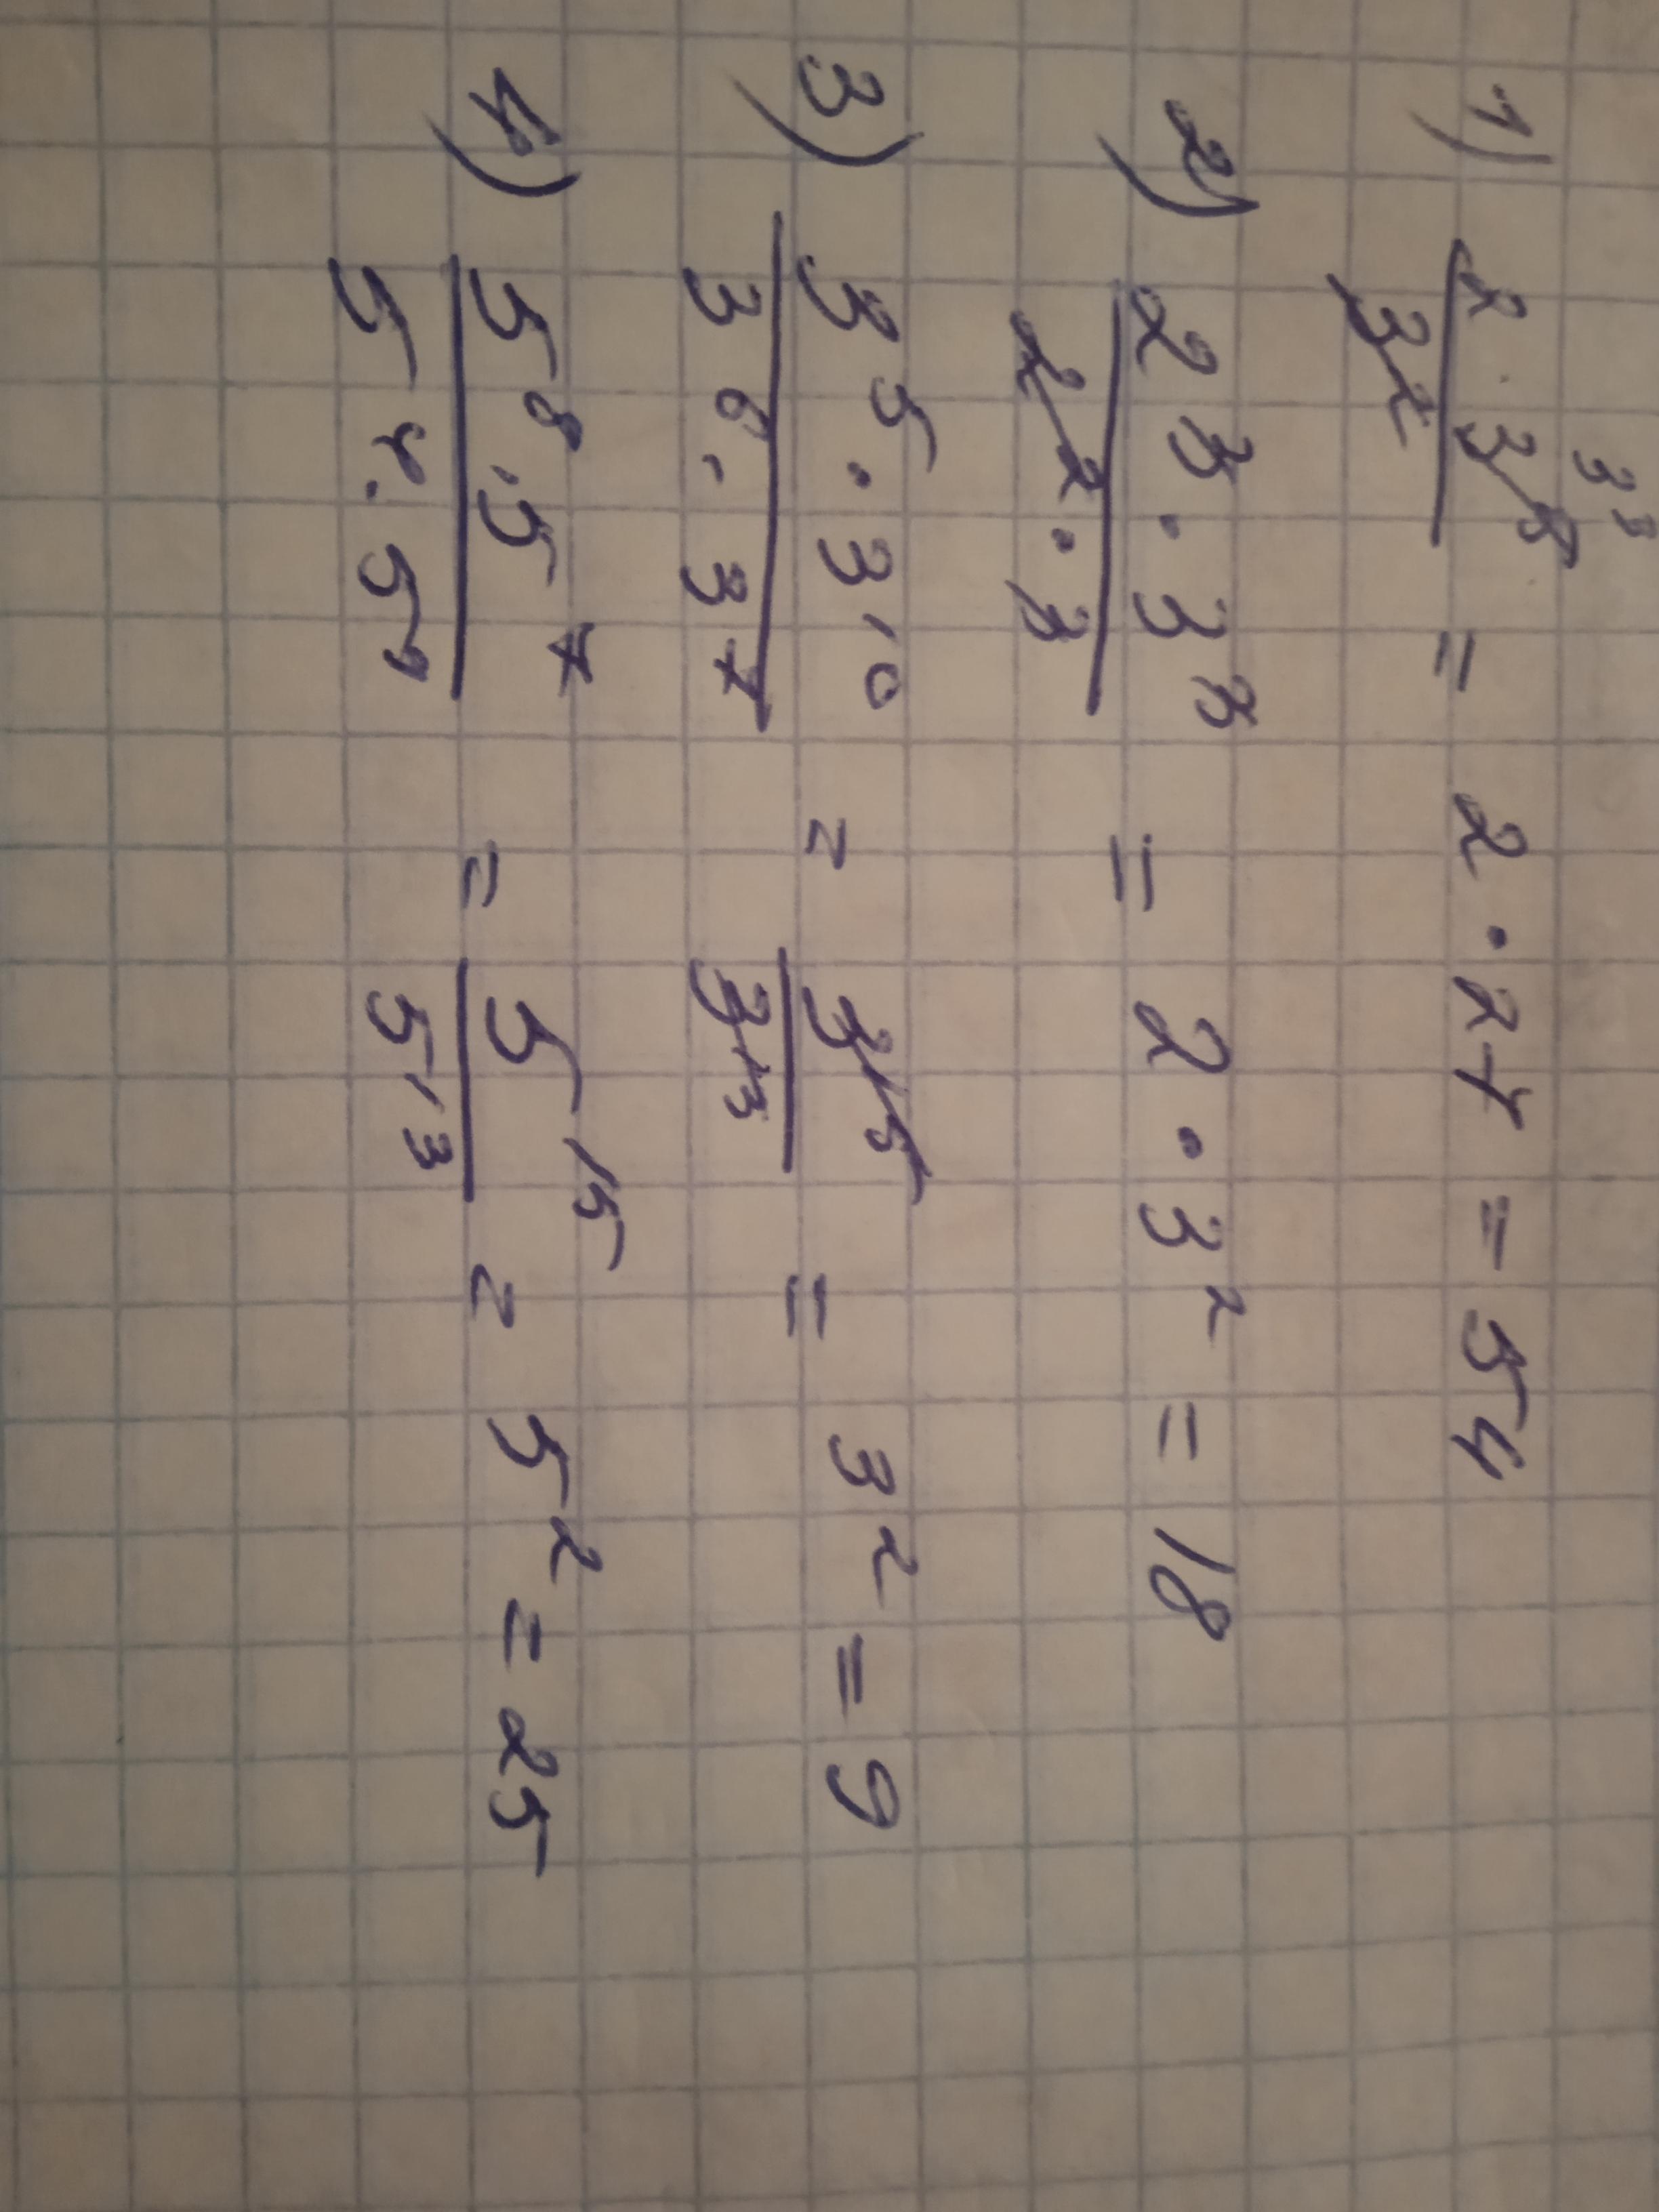 1) (2 · 3⁵)/3² 3³ = 2 · 27 = 54
2) (2³ · 3³)/(2² · 3) = 2 · 3² = 18
3) (3⁵ · 3¹⁰)/(3⁶ · 3⁷) = 3¹⁵/3¹³ = 3² = 9
4) (5⁸ · 5⁷)/(5⁴ · 5⁹) = 5¹⁵/5¹³ = 5² = 25